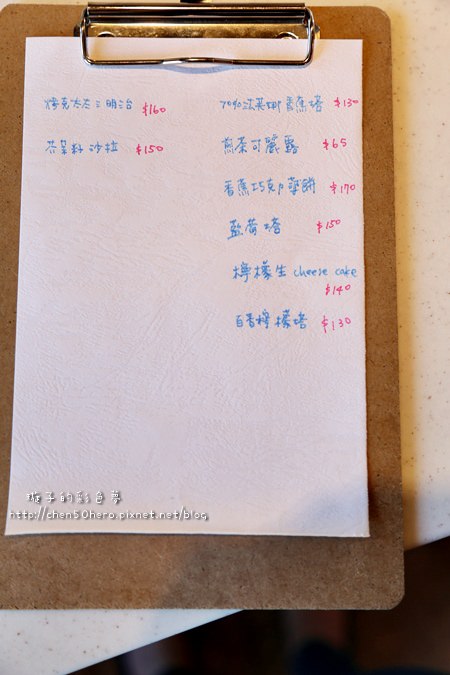 庫克太太三明治 $160
芥茉籽沙拉 $150
70%沈莫娜香蕉塔 $130
煎茶可麗露 $65
香蕉巧克力薄餅 $170
藍莓塔 $150
檸檬生 cheese cake
$140
百香檸檬塔 $130
旋子的彩色夢
http://chen50hero.pixnet.net/blog